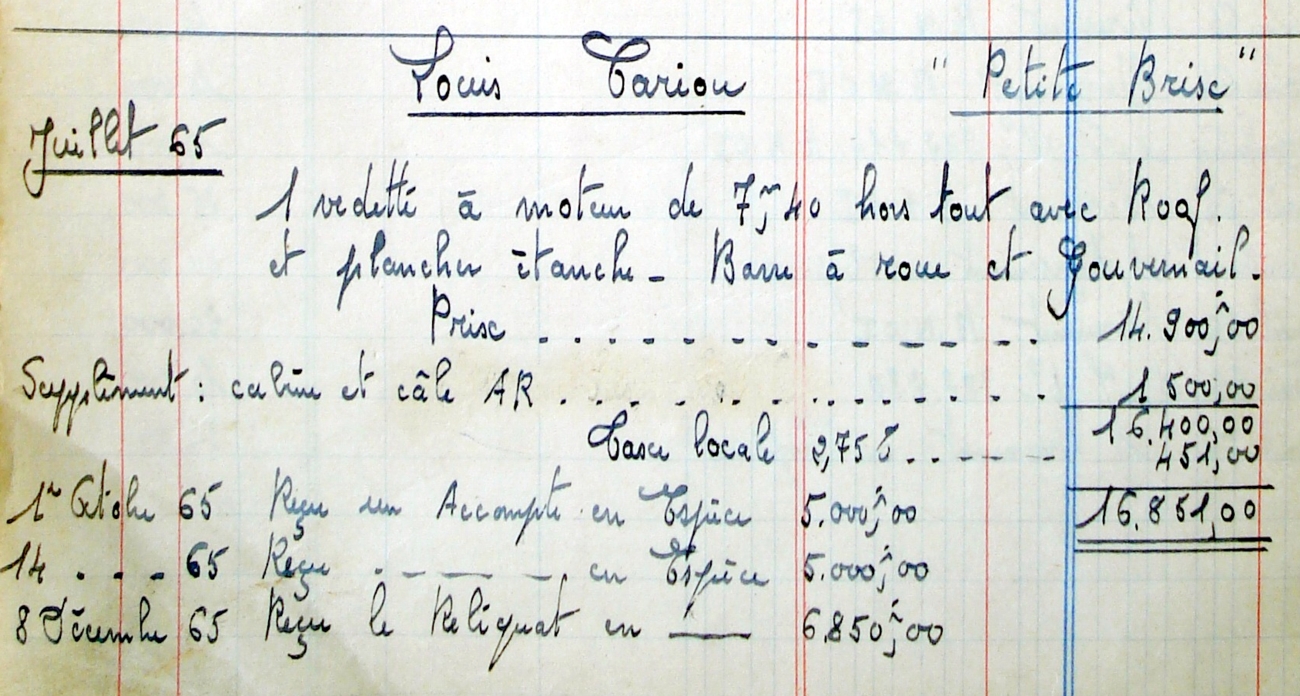 Louis Cariou " Petite Brise "
Juillet 65
1 vedette à moteur de 7,m40 hors tout avec Roof.
et plancher étanche - Barre à roue et Gouvernail.
Prise . . . . . . . . . . . . 14.900,00
Supplément : cabine et câle AR . . . . . . . . . . . . 1 500,00
16.400,00
Taxe locale 2,75% . . - - - - 451,00
1er Octobre 65 Reçu un Accompte en Espèce 5.000,00 16.851,00
14 . - - 65 Reçu . - - - - en Espèce 5.000,00
8 Décembre 65 Reçu le Reliquat en — 6.850,00